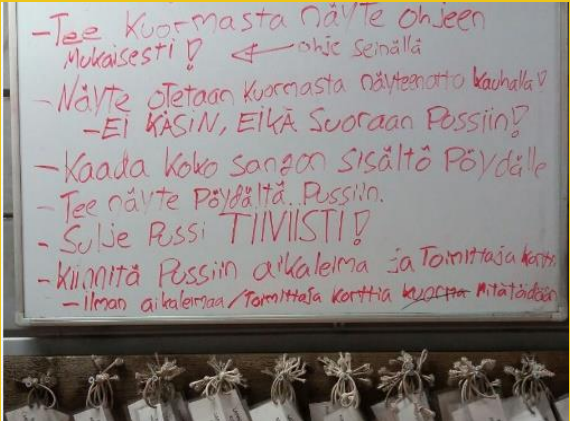 - Tee Kuormasta näyte ohjeen
Mukaisesti! ← ohje seinällä
- Näyte otetaan kuormasta näytteenotto kauhalla!
- Ei KÄSIN, EIKÄ Suoraan Pussiin!
- Kaada koko sangon sisältö Pöydälle
- Tee näyte Pöydältä Pussiin.
- Sulje Pussi TIIVISTI!
- Kiinnitä Pussiin aikaleima ja Toimittaja kortti
- Ilman aikaleimaa/Toimittaja korttia kuorma Mitätöidään